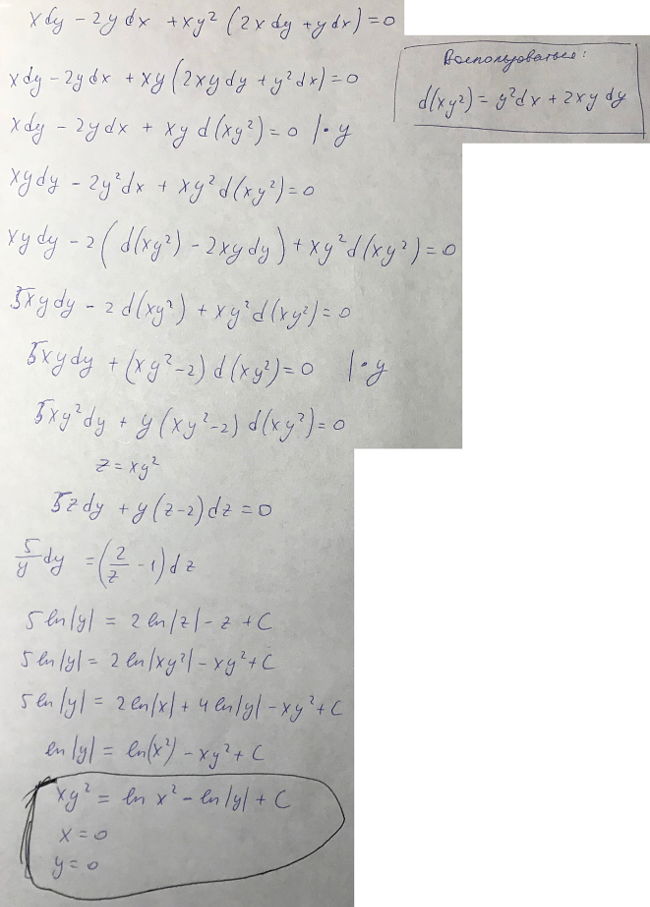 xdy - 2ydx + xy² (2xdy + ydx) = 0
xdy - 2ydx + xy (2xydy + y²dx) = 0
Воспользоваться:
d(xy²) = y²dx + 2xydy
xdy - 2ydx + xy d(xy²) = 0 |· y
xydy - 2y²dx + xy² d(xy²) = 0
xydy - 2 (d(xy²) - 2xydy) + xy² d(xy²) = 0
5xydy - 2d(xy²) + xy² d(xy²) = 0
5xydy + (xy² - 2) d(xy²) = 0 |· y
5xy²dy + y (xy² - 2) d(xy²) = 0
z = xy²
5zdy + y(z - 2)dz = 0
5/y dy = (2/z - 1) dz
5 ln|y| = 2 ln|z| - z + C
5 ln|y| = 2 ln|xy²| - xy² + C
5 ln|y| = 2 ln|x| + 4 ln|y| - xy² + C
ln|y| = ln(x²) - xy² + C
xy² = ln x² - ln|y| + C
x = 0
y = 0